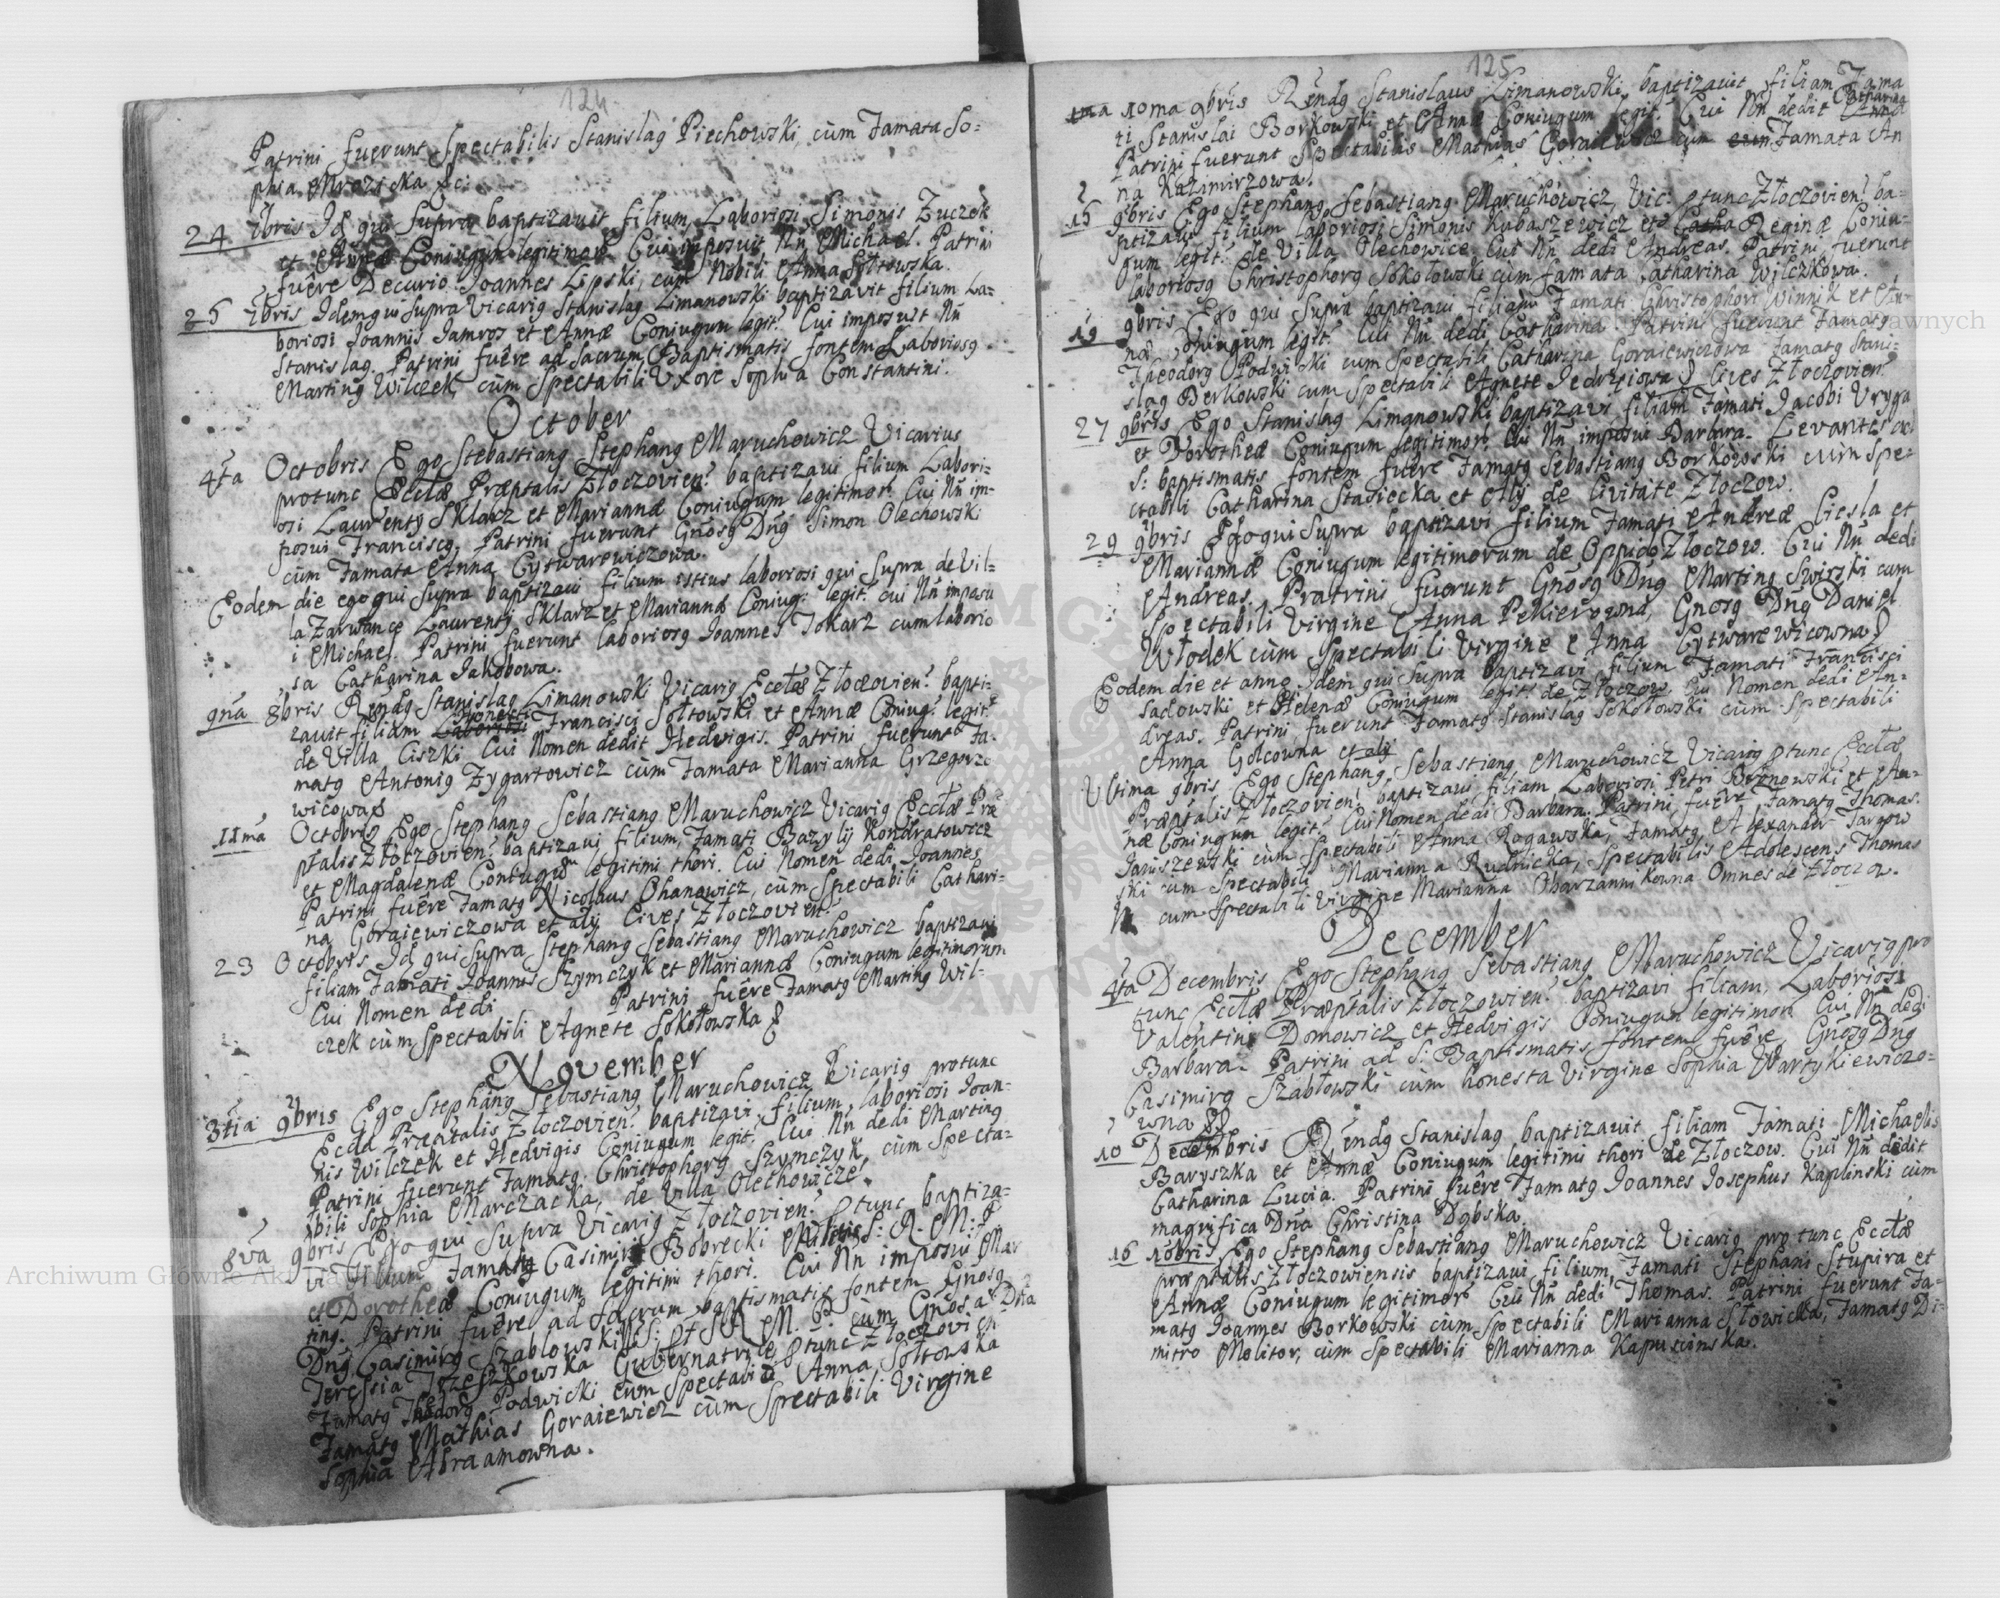 124
Patrini fuerunt Spectabilis Stanislaq Piechowski, cùm Famata So=
phia Mrozicka &c:
24 7bris Idq qui supra baptizavit filium Laboriosi Simonis Zuczek
et Agnæ Coniugum legitimor. Cui imposuit Nn Michael. Patrini
fuêre Decurio Joannes Lipski, cum Nobili Anna Sołtowska.
25 7bris Idemqui supra Vicariq Stanislaq Limanowski baptizavit filium La=
boriosi Joannis Jamroz et Annæ Coniugum legit. Cui imposuit Nn
Stanislaq. Patrini fuêre ad Sacrum Baptismatis fontem Laboriosq
Martinq Wilczek, cùm Spectabili Uxore Sophia Constantini.
October
4ta Octobris Ego Stebastianq Stephanq Maruchowicz Vicarius
protunc Ecclæ Præptalis Złoczovien? baptizavi filium Labori=
osi Laurenty Sklarz et Mariannæ Coniugum legitimor. Cui Nn im=
posui Franciscq. Patrini fuerunt Gnosq Dnq Simon Olechowski
cùm Famata Anna Cytwarewiczowa.
Eodem die ego qui supra baptizavi filium istius laboriosi qui supra de Vil=
la Zarwance Laurenty Sklarz et Mariannæ Coniug: legit. cui Nn imposu
i Michael. Patrini fuerunt laboriosq Joannes Tokarz cum laborio
sa Catharina Jakobowa.
9na 8bris Rendq Stanislaq Limanowski Vicariq Ecclæ Złoczovien? bapti=
zavit filiam Laboriosi Honesti Francisci Sołtowski et Annæ Coniug. legit.
de Villa Ciszki Cui Nomen dedit Hedvigis. Patrini fuerunt Fa=
matq Antoniq Zygartowicz cùm Famata Marianna Grzegorzo
wicowa &
11ma Octobris Ego Stephanq Sebastianq Maruchowicz Vicariq Ecclæ Præ
ptalis Złoczovien? baptizavi filium Famati Bazylij Kondratowicz
et Magdalenæ Coniugum legitimi thori. Cui Nomen dedi Joannes
Patrini fuêre Famatq Nicolaus Ohanowicz, cùm Spectabili Cathari=
na Goraiewiczowa et alij Cives Złoczovien?
23 Octobris Idq qui supra Stephanq Sebastianq Maruchowicz baptizavi
filiam Famati Joannis Szymczyk et Mariannæ Coniugum legitimorum
Cui Nomen dedi Patrini fuêre Famatq Martinq Wil=
czek cùm Spectabili Agnete Sokołowska &
November
3tia 9bris Ego Stephanq Sebastianq Maruchowicz Vicariq protunc
Eccla Præptalis Złoczovien? baptizavi filium laboriosi Joan=
nis Wilczek et Hedvigis Coniugum legit. Cui Nn dedi Martinq
Patrini fuerunt Famatq Christophorq Szymczyk, cùm Specta=
bili Sophia Marczacka, de Villa Olechowicze.
8va 9bris Ego qui supra Vicariq Złoczovien? ptunc baptiza=
vi filium Famatq Casimiri Bobrecki Militis S. R. M. P
et Dorotheæ Coniugum legitimi thori. Cui Nn imposui Mar
tinq. Patrini fuêre ad Sacrum baptismatis fontem Gnosq
Dnq Casimirq Szablowski S. R. M. P. cum Gnosa Dna
Teressia Jozeszkowska Gubernatrice ptunc Złoczovien
Famatq Thodorq Podwicki cum Spectabili Anna Sołtowska
Famatq Mathias Goraiewicz cùm Spectabili Virgine
Sophia Abraamowna.
125
10ma 9bris Rendq Stanislaus Limanowski, baptizavit filiam Fama
ti Stanislai Borkowski et Annæ Coniugum legit. Cui Nn dedit Anna Catharina
Patrini fuerunt Spectabilis Mathias Goraiewicz cum eum Famata An
na Kazimirzowa.
15 9bris Ego Stephanq Sebastianq Maruchowicz, Vic: ptunc Złoczovien? ba=
ptizavi filium laboriosi Simonis Łubaszewicz et Catha Reginæ Coniu=
gum legit. de Villa Olechowice Cui Nn dedi Andreas. Patrini fuerunt
laboriosq Christophorq Sokołowski cùm famata Catharina Wilczkowa.
19 9bris Ego qui supra baptizavi filiam Famati Christophori Winnik et An=
næ Coniugum legit. Cui Nn dedi Catharina. Patrini fuerunt Famatq
Theodorq Podwiski cum Spectabili Catharina Goraiewiczowa Famatq Stani=
slaq Berkowski cum Spectabili Agnete Jedrzeiowa & Cives Złoczovien?
27 9bris Ego Stanislaq Limanowski baptizavi filiam Famati Jacobi Uryga
et Dorotheæ Coniugum legitimor. Cui Nn imposui Barbara. Levantes ad
S: baptismatis fontem fuêre Famatq Sebastianq Borkowski cùm Spe=
ctabili Catharina Stasiecka et alij de Civitate Złoczow.
29 9bris Ego qui supra baptizavi filium Famati Andreæ Ciesla et
Mariannæ Coniugum legitimorum de Oppido Złoczow. Cui Nn dedi
Andreas. Pratrini fuerunt Gnosq Dnq Martinq Swirski cum
Spectabili Virgine Anna Pekierowna, Gnosq Dnq Daniel
Włodek cùm Spectabili Virgine Anna Cytwarewicowna &
Eodem die et anno Idem qui supra baptizavi filium Famati Francisci
Sadowski et Helenæ Coniugum legit. de Złoczow Cui Nomen dedi An=
dreas. Patrini fuerunt Famatq Stanislaq Sokołowski cùm Spectabili
Anna Golcowna et alij
Ultima 9bris Ego Stephanq Sebastianq Maruchowicz Vicariq ptunc Ecclæ
Præptalis Złoczovien? baptizavi filiam Laboriosi Petri Bronowski et An=
næ Coniugum legit. Cui Nomen dedi Barbara. Patrini fuêre Famatq Thomas
Janiszewski cùm Spectabili Anna Rogawska, Famatq Alexander Targow
ski cum Spectabili Marianna Rudnicka, Spectabilis Adolescens Thomas
N cum Spectabili Virgine Marianna Obarzannikowna Omnes de Złoczow.
December
4ta Decembris Ego Stephanq Sebastianq Maruchowicz Vicariq pro
tunc Ecclæ Præptalis Złoczowien? baptizavi filiam, Laboriosi
Valentini Domowicz et Hedvigis Coniugum legitimor. Cui Nn dedi
Barbara. Patrini ad S: Baptismatis fontem fuêre, Gnosq Dnq
Casimirq Szabłowski cùm honesta Virgine Sophia Wartykiewiczo=
wna &
10 Decembris Rendq Stanislaq baptizavit filiam Famati Michaelis
Baryszka et Annæ Coniugum legitimi thori de Złoczow. Cui Nn dedit
Catharina Lucia. Patrini fuêre Famatq Joannes Josephus Kaplinski cùm
magnifica Dna Christina Dębska.
16 10bris Ego Stephanq Sebastianq Maruchowicz Vicariq pro tunc Ecclæ
præptalis Złoczowiensis baptizavi filium Famati Stephani Stupira et
Annæ Coniugum legitimor. Cui Nn dedi Thomas. Patrini fuerunt Fa=
matq Joannes Borkowski cùm Spectabili Marianna Słowicka, Famatq Di=
mitro Molitor, cùm Spectabili Marianna Kapuscinska.